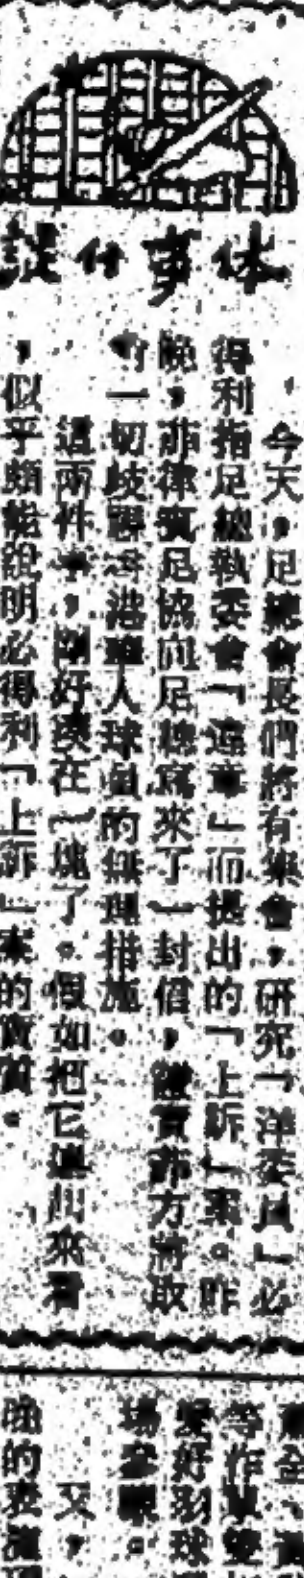 談什事体
今天，足總會長們將有集會，研究「洋委員」必
得利指足總執委會「違章」而提出的「上訴」案。昨
晚，菲律賓足協向足總寫來了一封信，證實菲方將取
一切歧港華人球員的無理措施。
這兩件事，剛好湊在一塊了。假如把它連起來看
，似乎頗能說明必得利「上訴」案的實質。
等作單
愛好羽球
場參觀。
又，
晚的表演